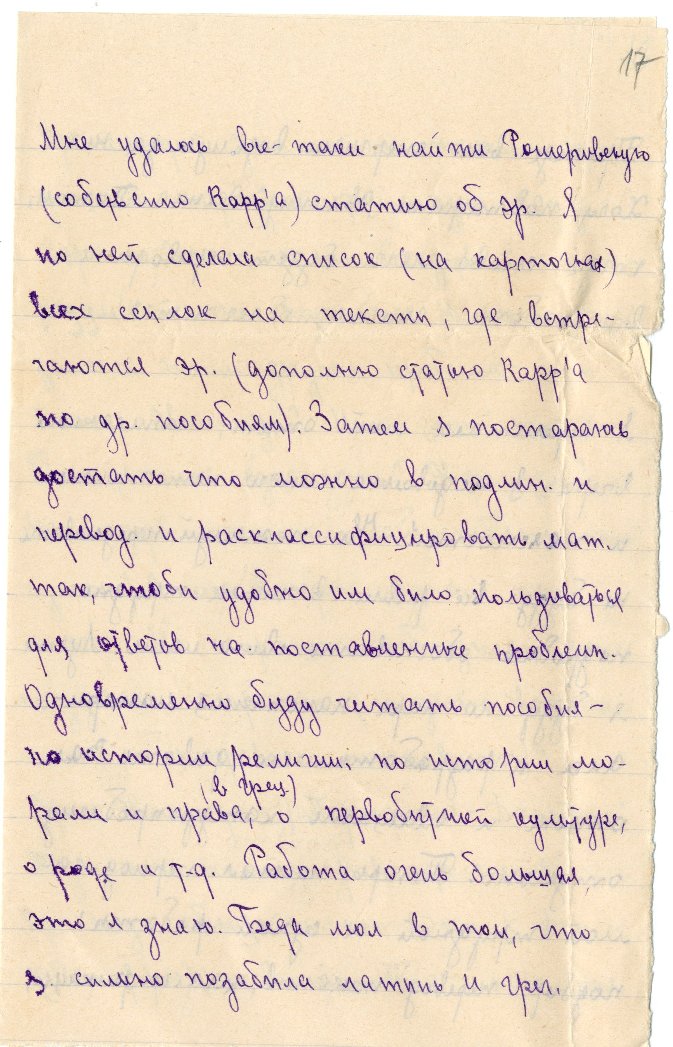 17
Мне удалось все-таки найти Рошеровскую
(собственно Карр'а) статью об эр. Я
по ней сделала список (на карточках)
всех ссылок на тексты, где встре-
чаются эр. (дополню статью Карр'а
по др. пособиям). Затем я постараюсь
достать что можно в подлин. и
перевод. и расклассифицировать мат.
так, чтобы удобно им было пользоваться
для ответов на поставленные проблемы.
Одновременно буду читать пособия –
по истории религии, по истории мо-
рали и права, (в Грец.) о первобытной культуре,
о роде и т.д. Работа очень большая,
это я знаю. Беда моя в том, что
я сильно позабыла латынь и греч.